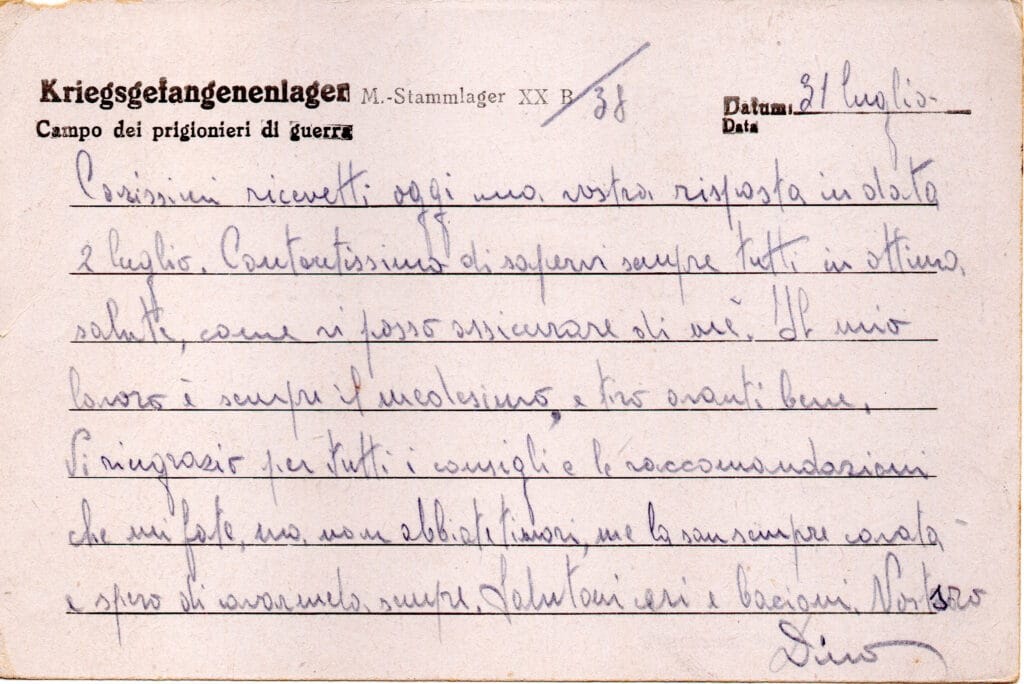 Kriegsgefangenenlager M.-Stammlager XX B/38
Datum: 31 luglio.
Campo dei prigionieri di guerra
Data
Carissimi ricevetti oggi una vostra risposta in data
2 luglio. Contentissimo di sapervi sempre tutti in ottima
salute, come vi posso assicurare di mè. Il mio
lavoro è sempre il medesimo, e tiro avanti bene.
Vi ringrazio per tutti i consigli e le raccomandazioni
che mi fate, ma non abbiate timori, me la son sempre cavata
e spero di cavarmela sempre. Salutoni cari e bacioni. Vostro
Dino